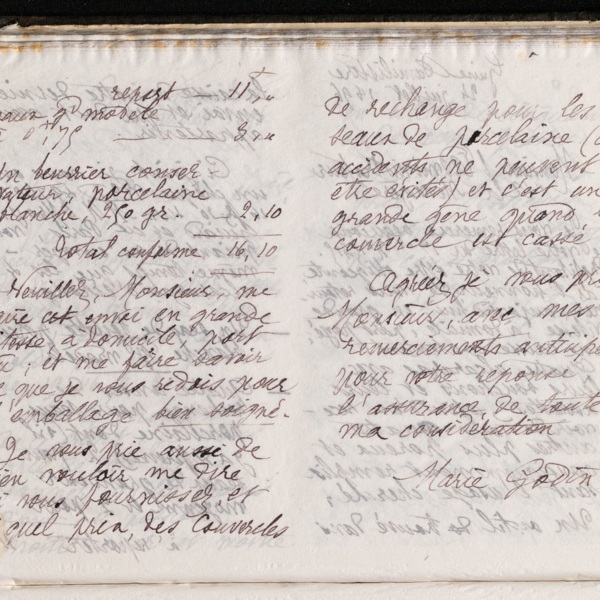 report — 11 "
gd modèle
0f75 — 3 "
Un beurrier conser
vateur, porcelaine
blanche, 250 gr. — 2,10
Total conforme 16,10
Veuillez, Monsieur, me
est envoi en grande
vitesse à domicile, port
et me faire savoir
ce que je vous redois pour
emballage bien soigné.
Je vous prie aussi de
bien vouloir me dire
si vous fournissez et
quel prix, des couvercles
de rechange pour les
seaux de porcelaine (
accidents ne peuvent
être évités) et c'est un
grande gêne quand
couvercle est cassé
Agréez je vous pri
Monsieur, avec mes
remerciements anticipé
pour votre réponse
l'assurance de toute
ma considération
Marie Godin